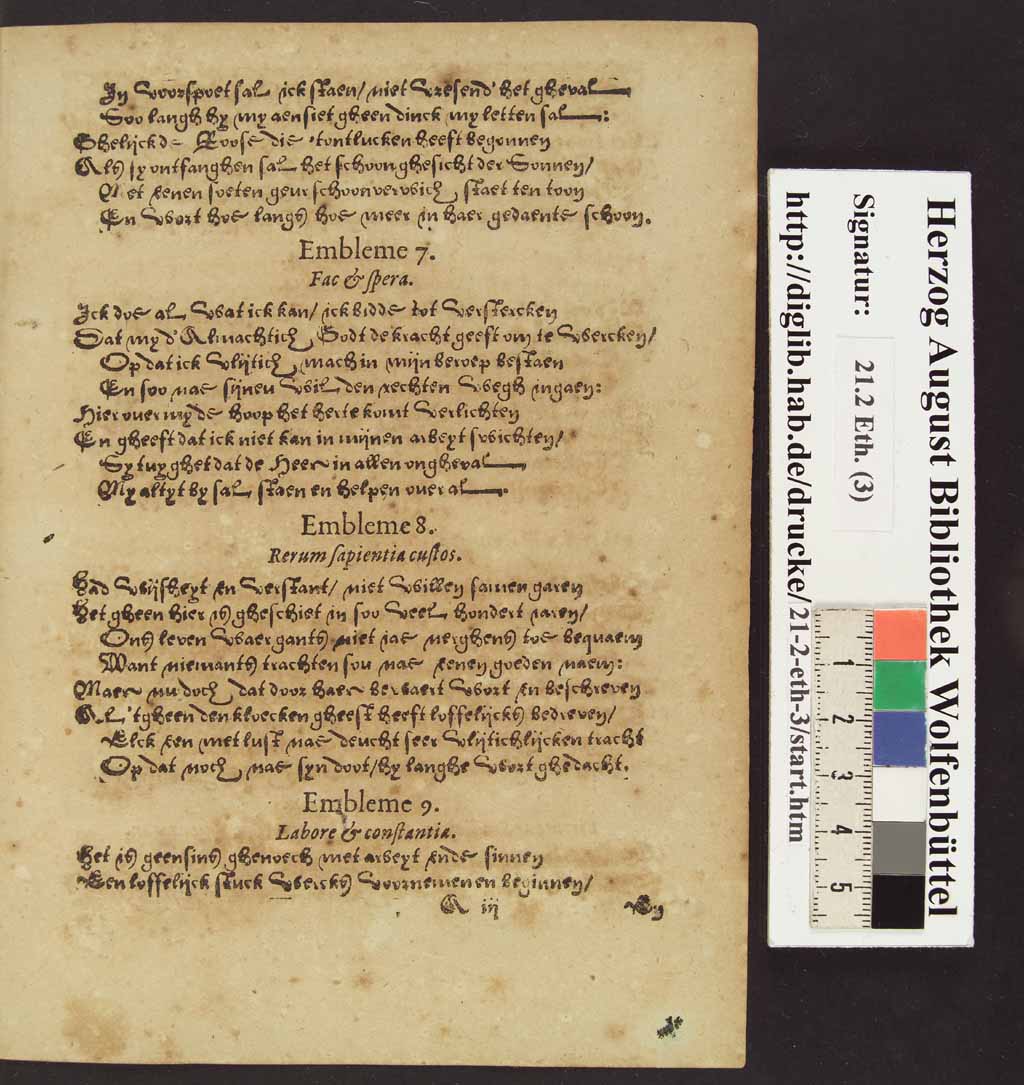 In voorspoet sal ick staen/ niet vresend' het gheval
Soo langh hy my aensiet gheen dinck my letten sal:
Ghelijck de Roose die t'ontlucken heeft begonnen
Als sy ontfanghen sal het schoon ghesicht der Sonnen/
Met eenen soeten geur schoon verwich staet ten toon
En wort hoe langs hoe meer in haer gedaente schoon.
Embleme 7.
Fac & spera.
Ick doe al wat ick kan/ ick bidde tot verstercken
Dat my d'Almachtich Godt de kracht geeft om te wercken/
Op dat ick vlijtich mach in mijn beroep bestaen
En soo nae sijnen wil den rechten wegh ingaen:
Hier over my de hoop het herte komt verlichten
En gheeft dat ick niet kan in mijnen arbeyt swichten/
Sy tuyghet dat de Heer in allen ongheval
My altyt by sal staen en helpen over al.
Embleme 8.
Rerum sapientia custos.
Had wijsheyt en verstant/ niet willen samen garen
Het gheen hier is gheschiet in soo veel hondert iaren/
Ons leven waer gants niet iae nerghens toe bequaem
Want niemants trachten sou nae eenen goeden naem:
Maer nu doch dat door haer bewaert wort en beschreven
Al 'tgheen den kloecken gheest heeft loffelijcks bedreven/
Elck een met lust nae deucht seer vlijtichlijcken tracht
Op dat noch nae syn doot/ hy langhe wort ghedacht.
Embleme 9.
Labore & constantia.
Het is geensins ghenoech met arbeyt ende sinnen
Een loffelijck stuck wercks voornemen en beginnen/
A iij
En
Herzog August Bibliothek Wolfenbüttel
Signatur: 21.2 Eth. (3)
http://diglib.hab.de/drucke/21-2-eth-3/start.htm
1 2 3 4 5